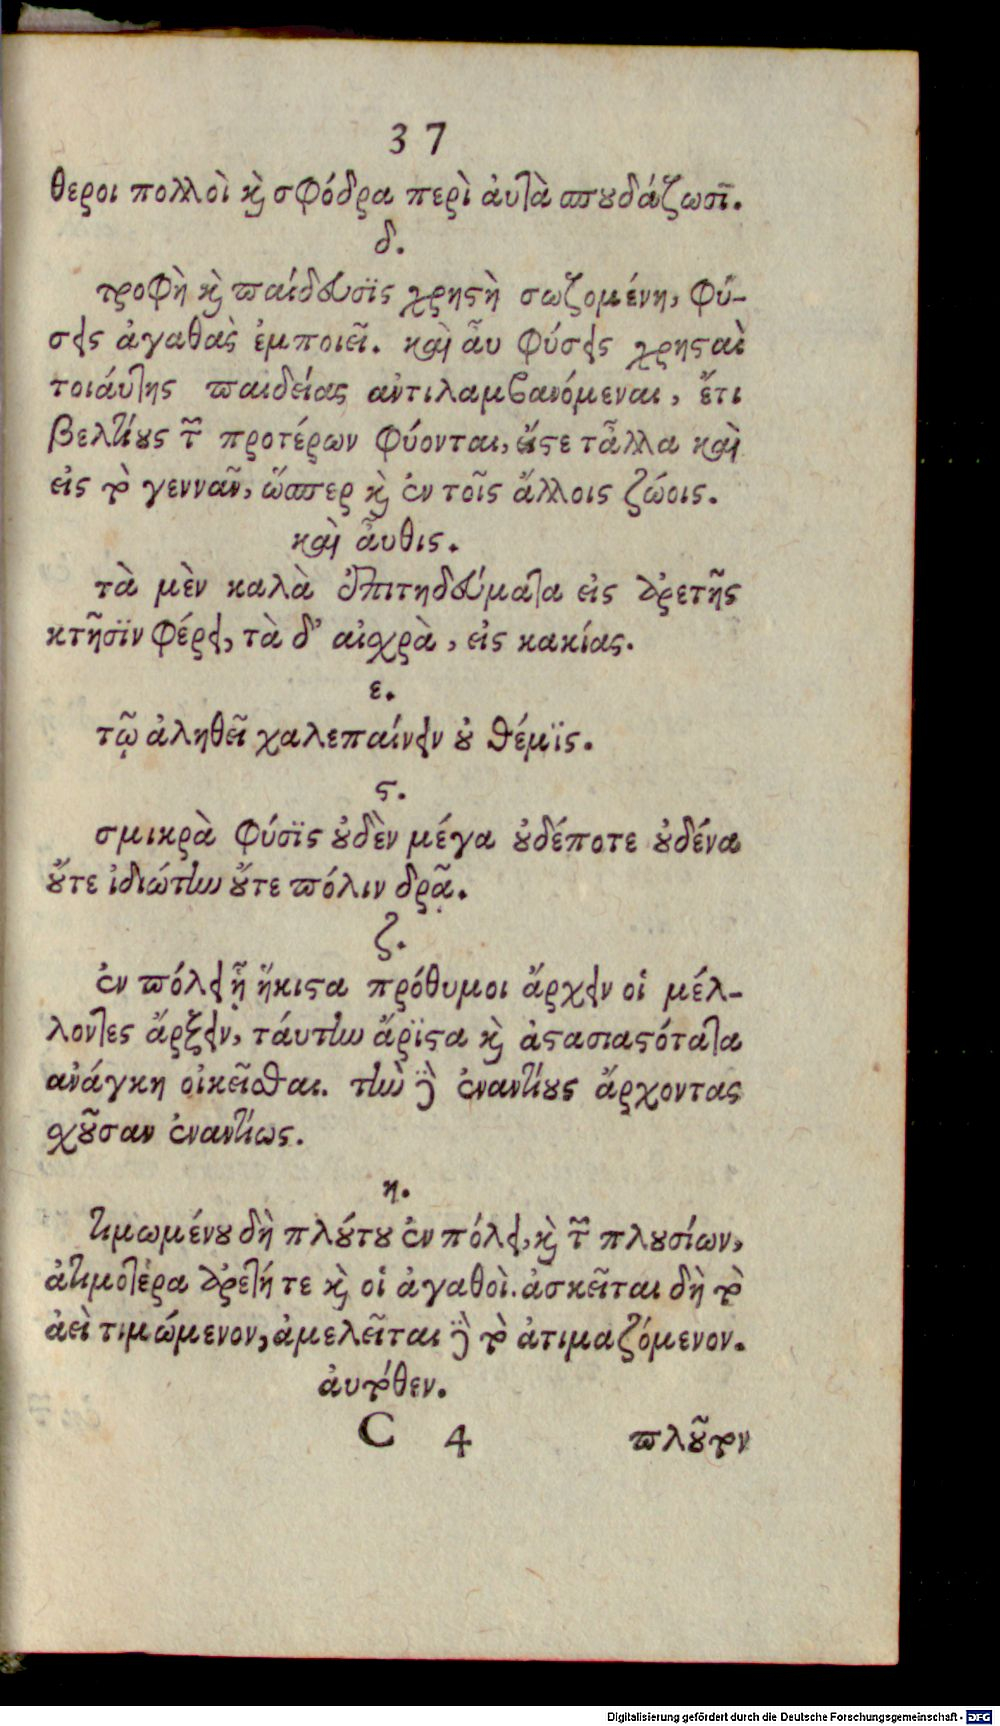 37
θεροι πολλοὶ καὶ σφόδρα περὶ ἀυτὰ σπουδάζωσῐ.
δ.
τροφὴ καὶ παίδευσϊς χρηστὴ σωζομένη, φύ-
σεις ἀγαθὰς ἐμποιεῖ. καὶ ἆυ φύσεις χρησταὶ
τοιάυτης παιδείας ἀντιλαμβανόμεναι, ἔτι
βελτίους τῶν προτέρων φύονται, εἴς τε τἆλλα καὶ
εἰς τὸ γεννᾶν, ὥσπερ καὶ ἐν τοῖς ἄλλοις ζώοις.
καὶ ἆυθις.
τὰ μὲν καλὰ ἐπιτηδεύματα εἰς ἀρετῆς
κτῆσϊν φέρει, τὰ δ' αἰσχρὰ, εἰς κακίας.
ε.
τῷ ἀληθεῖ χαλεπαίνειν οὐ θέμϊς.
ς.
σμικρὰ φύσϊς οὐδὲν μέγα οὐδέποτε οὐδένα
οὔτε ἰδιώτην οὔτε πόλιν δρᾷ.
ζ.
ἐν πόλει ᾗ ἥκιστα πρόθυμοι ἄρχειν οἱ μέλ-
λοντες ἄρξειν, τάυτην ἄρϊστα καὶ ἀστασιαστότατα
ἀνάγκη οἰκεῖσθαι. τὴν δὲ ἐναντίους ἄρχοντας
σχοῦσαν ἐναντίως.
η.
τιμωμένου δὴ πλούτου ἐν πόλει, καὶ τῶν πλουσίων,
ἀτιμοτέρα ἀρετή τε καὶ οἱ ἀγαθοὶ. ἀσκεῖται δὴ τὸ
ἀεὶ τιμώμενον, ἀμελεῖται δὲ τὸ ἀτιμαζόμενον.
ἀυτόθεν.
C 4 πλοῦτον
Digitalisierung gefördert durch die Deutsche Forschungsgemeinschaft - DFG